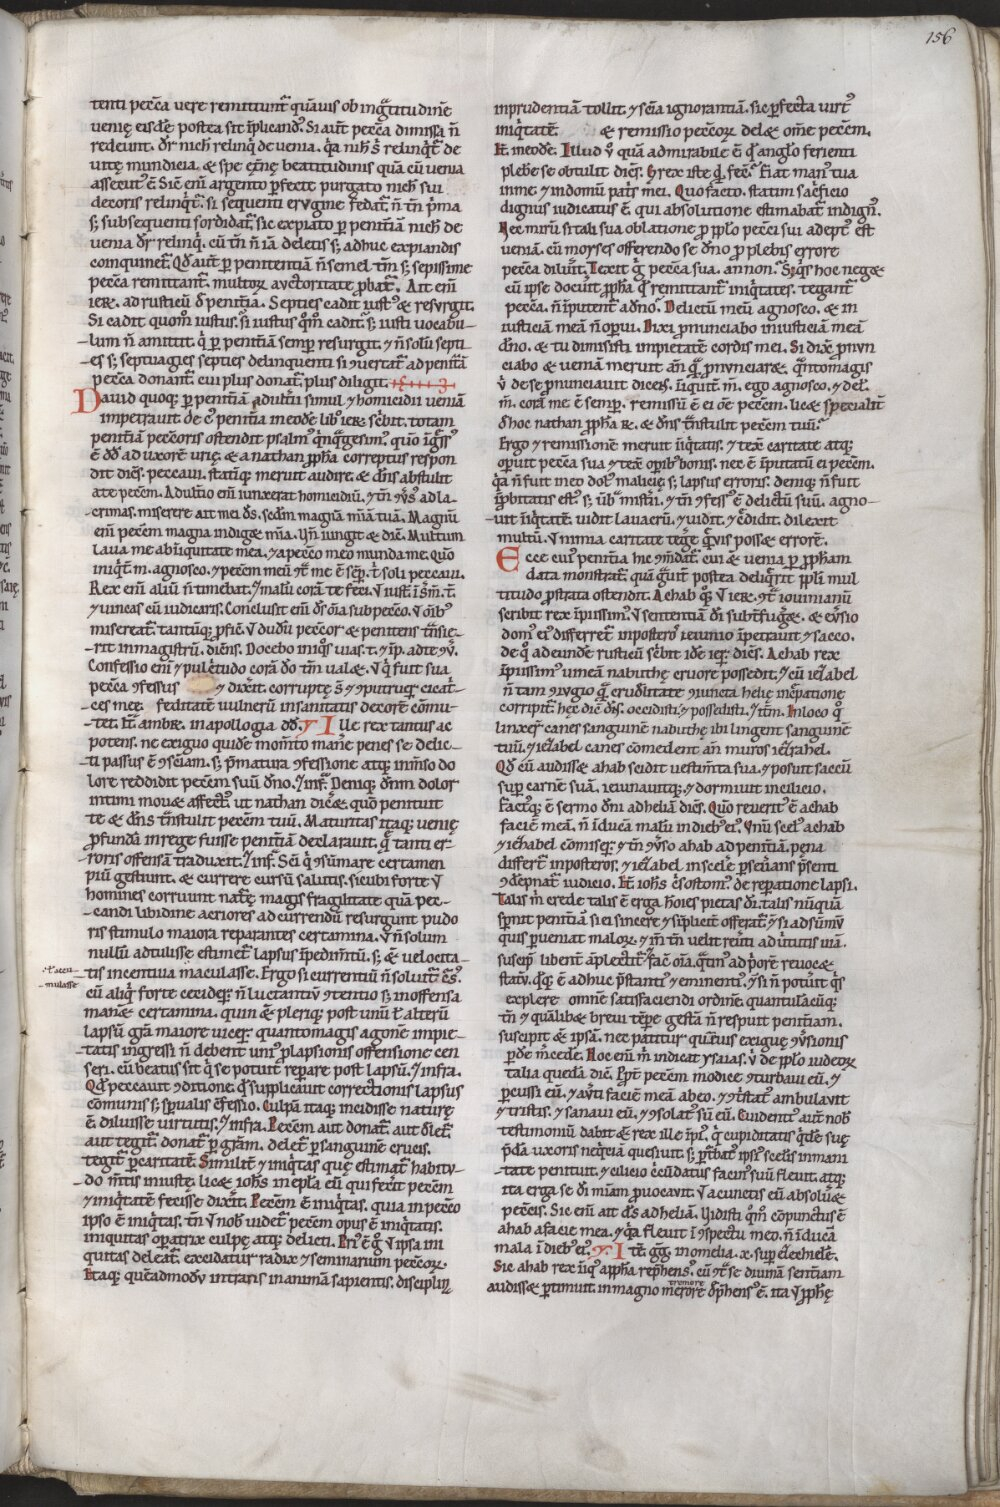 156
tenti peccā vere remittunt̄ quāvis ob ingͣtitudinē
venię eisdē postea sit īplicand᷒. Si aut̄ peccā dimissa n̄
redeunt. dr̄ nich̄ relinq̄ de venia. q̄a nih̄ s̄ relinqͥt̄ de
vitę mundicia. & spe et̄nę beatitudinis quā cū venia
assecut᷒ ē Sic eni argento pfecte purgato nich̄ sui
decoris relinqͥt̄. si sequenti erugine fedat̄ n̄ tn̄ pͥma
s; subsequenti sordidat̄. sic expiato p penitīā nich̄ de
venia dr̄ relinq̄. cū tn̄ n̄ iā deletis s; adhuc expiandis
coinquinet̄. Qd̄ aut̄ p penitentiā n̄ semel tm̄ s; sepissime
peccā remittant̄. multoꝝ auctoritate pbat̄. Ait eni
ier̄. ad rusticū d̄ penit̄ia. Septies cadit iust᷒ & resurgit.
Si cadit quom̊ iustus. si iustus qͦm̊ cadit. s; iusti vocabu-
lum n̄ amittit. qͥ p penit̄iā semp resurgit. & n̄ solū septi
es s; septuagies septies delinquenti si ꝯvertat̄ ad penit̄iā
peccā donant̄. cui plus donat̄. plus diligit.
David quoq; p penit̄iā adult̄ii simul & homicidii veniā
impetravit. de ē penit̄ia in eodē lib᷒ ier̄. sc̄bit. totam
penit̄iā peccoris ostendit psalm᷒ qͥnqͣgesim᷒. quō īgͬss᷒
ē dd̄ ad uxorē urię. & a nathan ppha correptus respon
dit dic̄s. peccavi. statīq; meruit audire. & dn̄s abstulit
a te pecc̄m. Adult̄io eni iunxerat homicidiū. & tn̄ ꝯvs᷒ ad la-
crimas. miserere ait mei d̄s. scd̄m magnā m̄iā tuā. Magnū
eni pecc̄m magna indig& m̄ia. Vn̄ iungit & dic̄. Multum
lava me ab iniquitate mea. & a pecc̄o meo munda me. Quō
iniqͥt̄. m. agnosco. & pecc̄m meū ꝯt̄ me ē semp. t̄ soli peccavi.
Rex eni aliū n̄ timebat. & malū corā te feci. V iust̄. ī s̄m̄. t̄
& vincas cū iudicaris. Conclusit eni ds̄ oīa sub pecc̄o. V om̄ib᷒
misereat̄. tantūq; pfic̄. V dudū peccor & penitens tn̄sie-
rit in magistrū. dic̄ns. Docebo iniqͦs vias. t. & īp. ad te ꝯv̄.
Confessio eni & pulcͥtudo corā dō tm̄ val&. V qͥ fuit sua
peccā ꝯfessus & dixͥit. corruptę s̄ & ꝯputruer̄ cicat̄-
ces meę. feditatē vulnerū in sanitatis decorē cōmu-
tet. It̄ ambr̄. in apollogia dd̄. & Ille rex tantus ac
potens. ne exiguo quidē mom̄to manē penes se delic-
ti passus ē ꝯsc̄iam. s; pͣmatura ꝯfessione atq; inm̄so do
lore reddidit pecc̄m suū dn̄o. & infͣ. Deniq; dn̄m dolor
intimi movit affect᷒. ut nathan dic̄et. quō penituit
te & dn̄s tn̄stulit pecc̄m tuū. Maturitas itaq; venię
pfundā in rege fuisse penit̄iā declaravit. qͣ tanti er-
roris offensā traduxit. & infͣ. Scī qͥ ꝯsūmare certamen
piū gestiunt. & currere cursū salutis. sicubi forte v̄
homines corruunt nat̄ę magis fragilitate quā pec-
candi libidine acriores ad currendū resurgunt pudo
ris stimulo maiora reparantes certamina. V n̄ solum
nullū adtulisse estimet̄ lapsus īpedim̄tū. s; & velocita-
tis incentiva maculasse. Ergo si currentiū n̄ soluit̄ c̄s᷒.
t̄ accu-
mulasse
cū aliqͥ forte cecider̄ n̄ luctantiū ꝯtentio s; inoffensa
man& certamina. quin & pleriq; post unū t̄ alterū
lapsū gr̄a maiore vicer̄. quantomagis agone impie-
tatis ingressi n̄ debent uni᷒ plapsionis offensione cen
seri. cū beatus sit qͥ se potuit reparare post lapsū. & infra.
Qd̄ peccavit ꝯditionē. qd̄ supplicavit correctionis lapsus
cōmunis s; sp̄ualis ꝯfessio. Culpā itaq; incidisse naturę
ē. diluisse virtutis. & infra. Pecc̄m aut donat̄. aut delet̄.
aut tegit̄. donat̄ p gr̄am. delet̄ p sanguinē crucis.
tegit̄ p caritatē. Similit̄ & iniqͥtas quę estimat̄ habitu-
do m̄tis iniustę. lic& ioh̄s in epl̄a eū qui fecͥit pecc̄m
& iniqͥtatē fecisse dixͥit. Pecc̄m ē iniqͥtas. quia in pecc̄o
ipso ē iniqͥtas. tn̄ v̄ nob̄ videt̄ pecc̄m opus ē iniqͥtatis.
iniquitas opatrix culpę atq; delicti. Pri᷒ ē gͦ v̄ ipsa ini
quitas deleat̄. excidatur radix & seminarium peccoꝝ.
Itaq; quēadmodū intraris in animā sapientis. disciplin̄
inprudentiā tollit. & sc̄ia ignorantiā. sic pfecta virt᷒
iniqͥtatē. & remissio peccoꝝ del& omē pecc̄m.
It̄ in eodē. Illud v̄ quā admirabile ē qd̄ anglo ferienti
plebē se obtulit dic̄s. Grex iste qͥd fec̄. Fiat man᷒ tua
in me & in domū patis mei. Quo facto. statim sacͥficio
dignus iudicatus ē. qui absolutione estimabat̄ indign᷒.
Nec mirū si tali sua oblatione p pplo pecci sui adept᷒ est
veniā. cū moyses offerendo se dn̄o p plebis errore
peccā diluit. Texit gͦ peccā sua. an non. Si qͥs hoc neg&
cū ipse docuit ppha qͥ remittant̄ iniqͥtates. tegant̄
peccā. n̄ iputent̄ a dn̄o. Delictū meū agnosco. & in
iusticiā meā n̄ opui. Dixi pnunciabo iniusticiā meā
dn̄o. & tu dimisisti impietatē cordis mei. Si dixͥ pnun
ciabo & veniā meruit an̄ qͣ pnunciar&. qͣntomagis
v̄ de se pnunciavit dicens. iniquit̄. m̄. ego agnosco. & del.
m̄. corā me ē semp. remissū ē ei oē pecc̄m. lic& specialit̄
d̄ hoc nathan ppha r̄. & dn̄s tn̄stulit pecc̄m tuū.
Ergo & remissionē meruit iniqͥtatis. & tex̄ caritate atq;
operuit peccā sua & tex̄ opib᷒ bonis. nec ē īputatū ei pecc̄m.
qͣ n̄ fuit in eo dol᷒ malicię s; lapsus erroris. deniq; n̄ fuit
īpbitatis est᷒ s; ub̄ mist̄ii. & tn̄ ꝯfess᷒ ē delictū suū. agno-
vit iniqͥtatē. vidit lavacrū. & vidit. & cͬdidit. dilexit
multū. V nimia caritate tegͬe qͣvis poss& errorē.
Ecce cui᷒ penit̄ia hic ꝯm̄dat̄. cui & venia p ppham
data monstrat̄. quā gͣvit̄ postea deliqͥrit ppli mul
titudo pstrata ostendit. Achab qͦq; v̄ ier̄. ꝯtͣ iovinianū
scribit rex īpiissim᷒. v̄ sententiā di subtfug&. & evͬsio
dom᷒ ei᷒ differret̄ in postero᷒ ieiunio īpetravit & sacco.
de qͦ ad eundē rusticū sc̄bit idē ier̄. dic̄s. Achab rex
īpiissim᷒ vineā nabuthę cruore possedit. & cū iezabel
n̄ tam ꝯiugio qͣ crudelitate ꝯiuncta helię īcͬpatione
corripit̄. hęc dic̄ dn̄s. occidisti. & possedisti. & itm̄. In loco qͦ
linxer̄ canes sanguinē nabuthę ibi lingent sanguinē
tuū. & iezabel canes comedent an̄ muros iezrahel.
Qd̄ cū audiss& ahab scidit vestim̄ta sua. & posuit saccū
sup carnē suā. ieiunavitq; & dormivit in cilicio.
Factusq; ē sermo dn̄i ad heliā dic̄s. Quō reverit᷒ ē achab
faciē meā. n̄ īducā malū in dieb᷒ ei᷒. Unū scel᷒ achab
& iezabel cōmiser̄. & tn̄ ꝯvso ahab ad penit̄iam. pęna
differt̄ in posteros. & iezabel in scelē pseverans pͥsenti
ꝯdēpnat̄ iudicio. It̄ ioh̄s c̄sostom᷒. de reparatione lapsi.
Talis m̄ crede talis ē erga hoīes pietas di. talis nūquā
spernit penit̄iā si ei sincere & siplicit̄ offerat̄. & si ad sūmū
quis pveniat maloꝝ. & in tn̄ velit revͬti ad vͥtutis viā.
suscip̄ libent̄ āplectit̄. fac̄ oīa. qͣtin᷒ ad pͥorē revoc&
statū. qͥdq; ē adhuc pͣstanti᷒ & eminenti᷒. & si n̄ potuͥit qͥs
explere omnē satisfaciendi ordinē. quantulācūq;
tn̄ & quālib& brevi tēpe gestā n̄ respuit penit̄iam.
suscipit & ipsā. nec patitur quāvis exiguę ꝯvsionis
pdē mcedē. Hoc eni m̄ indicat ysaias. v̄ de pplo iudeoꝝ
talia quedā dic̄. Ppt̄ pecc̄m modicę ꝯturbavi eū. &
pcussi eū. & avͬti faciē meā ab eo. & ꝯtͥstat᷒ ambulavit
& tristis. & sanavi eū. & ꝯsolat᷒ sū eū. Evidenti᷒ aut̄ nob̄
testimoniū dabit & rex ille īpi᷒. qͥ cupiditatis qͥdē suę
pͣdā uxoris neqͥcia quesivit. s; ptͥbat᷒ ipsi᷒ scelis inmani
tate penituit. & cilicio cͥcūdatus facin᷒ suū flevit. atq;
ita erga se di m̄iam pvocavit. v̄ a cunctis eū absolv&
peccīs. Sic eni ait ds̄ ad heliam. Vidisti qͦm̊ cōpunctus ē
ahab a facie mea. & qͣ flevit ī ꝯspectu meo. n̄ īducā
mala ī dieb᷒ ei᷒. & It̄ gͬg. in omelia. x. sup ezechielē.
Sic ahab rex iniqͦ a ppha repͬhens᷒. cū ꝯtͣ se divinā sent̄iam
tremore
audiss& ptimuit. in magno mērore dpͬhens᷒ ē. ita v̄ pphę